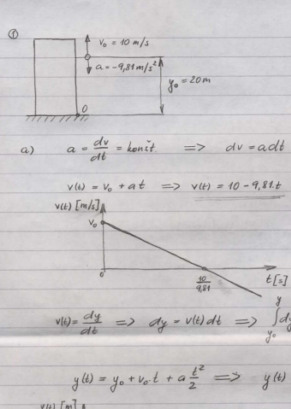 ①
v₀ = 10 m/s
a = -9,81 m/s²
y₀ = 20m
0
a) a = dv/dt = konšt. => dv = a dt
v(t) = v₀ + at => v(t) = 10 - 9,81.t
v(t) [m/s]
v₀
0
10/9,81
t[s]
v(t) = dy/dt => dy = v(t) dt => ∫ y y₀ dy
y(t) = y₀ + v₀.t + a t²/2 => y(t)
y(t) [m]